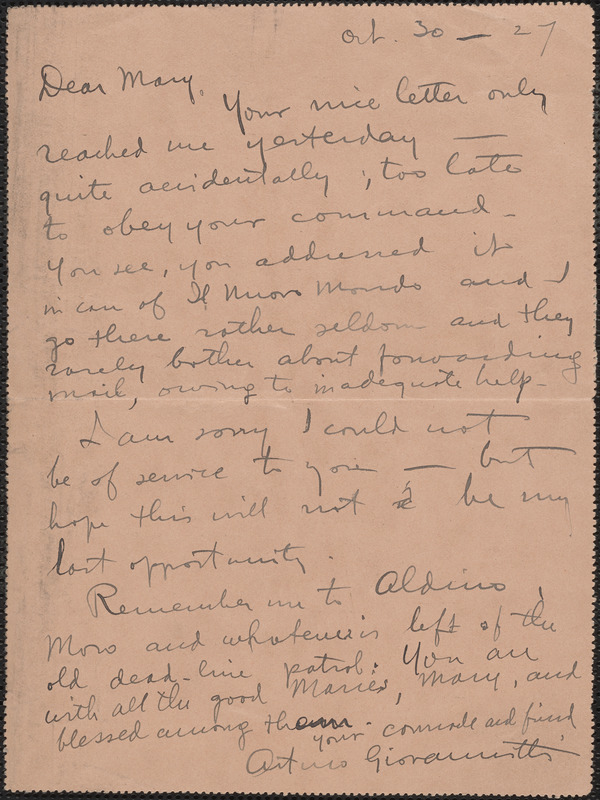 Oct. 30 — 27
Dear Mary,
Your nice letter only
reached me yesterday —
quite accidentally, too late
to obey your command -
You see, you addressed it
in care of Il Nuovo Mondo and I
go there rather seldom and they
rarely bother about forwarding
mail, owing to inadequate help -
I am sorry I could not
be of service to you — but
hope this will not be my
last opportunity.
Remember me to Aldino,
Moro and whatever is left of the
old dead-line patrol. You are
with all the good Maries, Mary, and
blessed among them -
your comrade and friend
Arturo Giovannitti